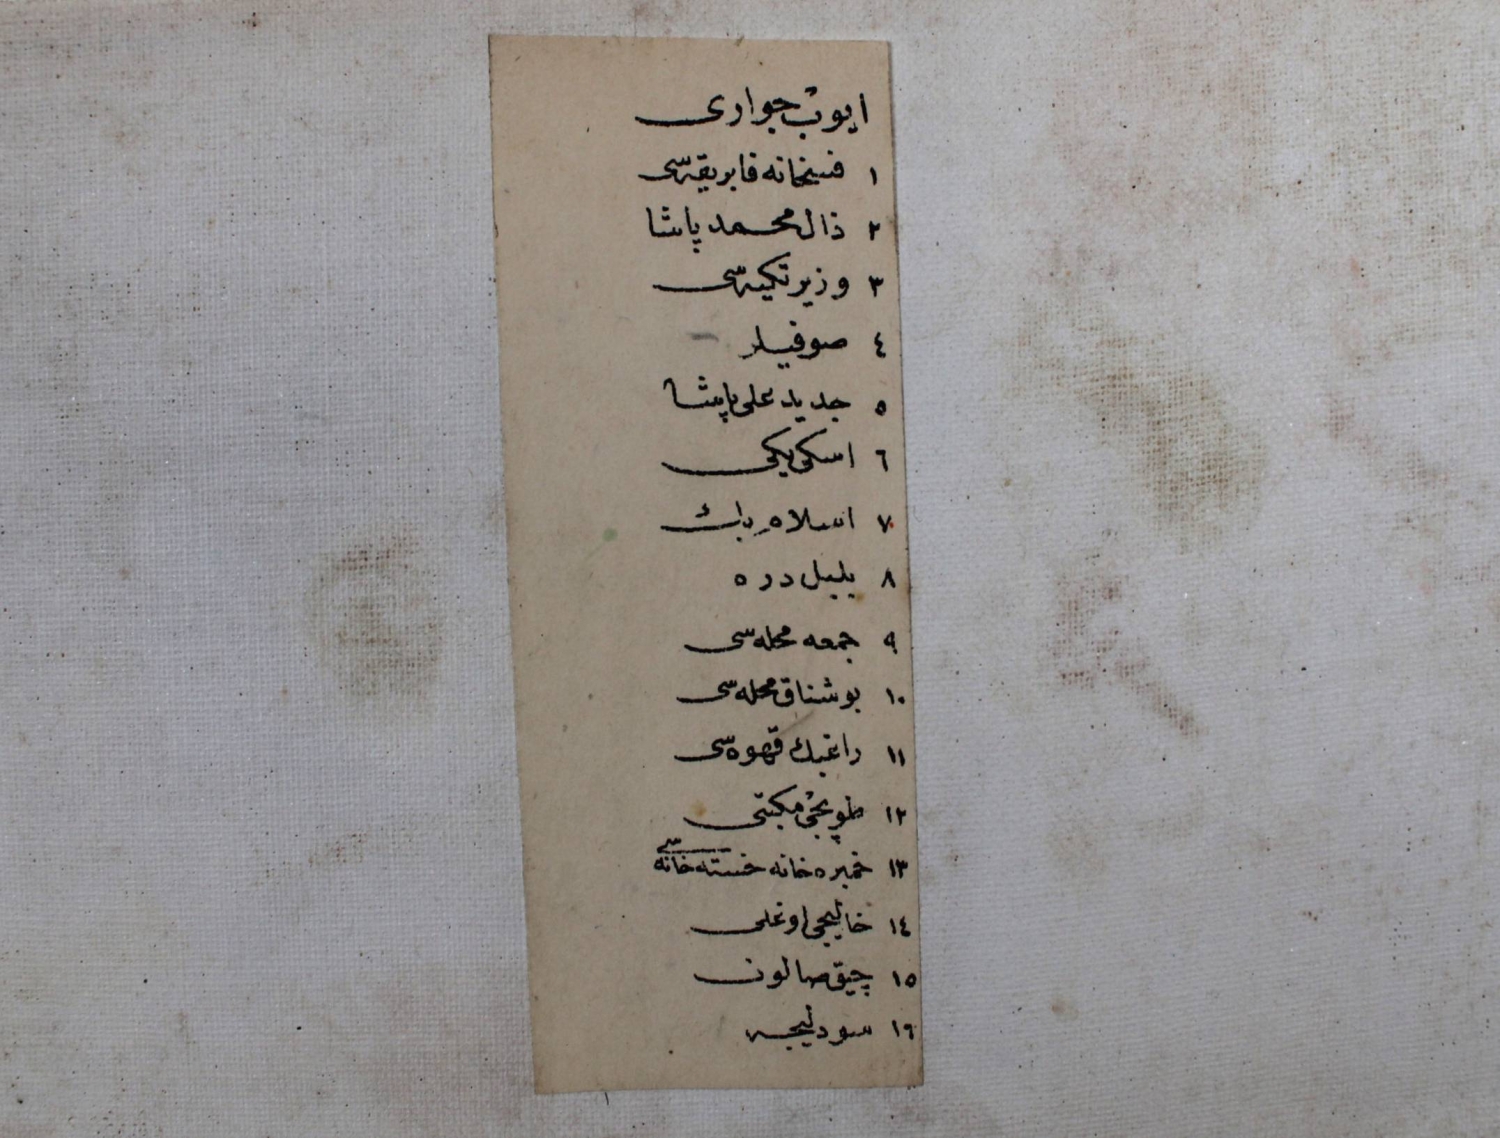 ايوب جوارى
١ فسخانه فابريقه سى
٢ ذال محمد پاشا
٣ وزير تكيه سى
٤ صوفيلر
٥ جديد على پاشا
٦ اسكى يكى
٧ اسلام بك
٨ بلبل دره
٩ جمعه محله سى
١٠ بوشناق محله سى
١١ راغب بك قهوه سى
١٢ طوپجى مكتبى
١٣ خمبره خانه خسته خانه سى
١٤ خاليجى اوغلى
١٥ چيق صالون
١٦ سودليجه